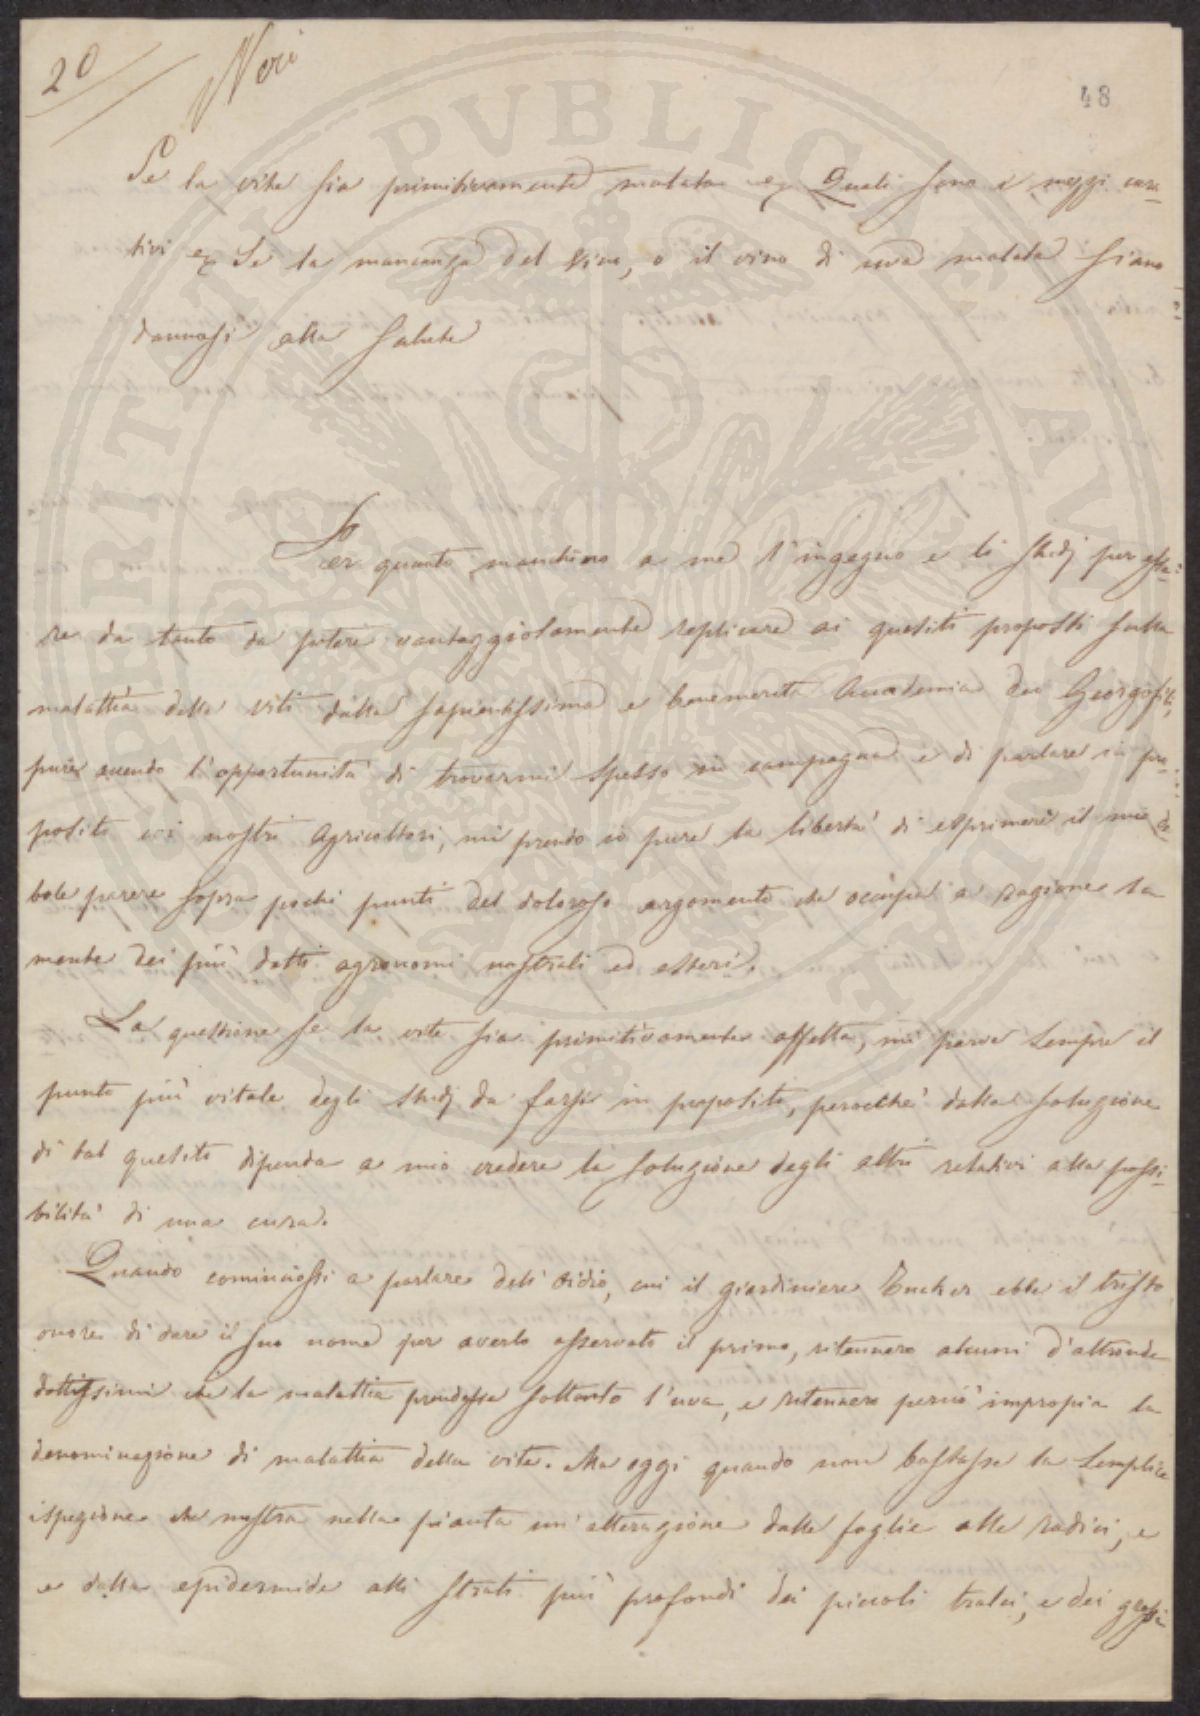 20
Neri
48
Se la vite sia primitivamente malata e Quali sono i mezzi cura-
tivi e Se la mancanza del vino, o il vino di uva malata siano
dannosi alla salute
Per quanto manchino a me l'ingegno e li studj per esse-
re da tanto da potere vantaggiosamente replicare ai quesiti proposti sulla
malattia delle viti dalla sapientissima e benemerita Accademia dei Georgofili,
pure avendo l'opportunità di trovarmi spesso in campagna e di parlare in pro-
posito coi nostri Agricoltori, mi prendo io pure la libertà di esprimere il mio de-
bole parere sopra pochi punti del doloroso argomento che occupa a ragione la
mente dei più dotti agronomi nostrali ed esteri.
La questione se la vite sia primitivamente affetta, mi parve sempre il
punto più vitale degli studj da farsi in proposito, perocchè dalla soluzione
di tal quesito dipenda a mio credere la soluzione degli altri relativi alla possi-
bilità di una cura.
Quando cominciossi a parlare dell'Oidio, cui il giardiniere Tucker ebbe il tristo
onore di dare il suo nome per averlo osservato il primo, ritennero alcuni d'altronde
dottissimi che la malattia prendesse soltanto l'uva, e ritennero perciò impropia la
denominazione di malattia della vite. Ma oggi quando non bastasse la semplice
ispezione che mostra nella pianta un'alterazione dalle foglie alle radici, e
e dalla epidermide alli strati più profondi dei piccoli tralci, e dei grossi